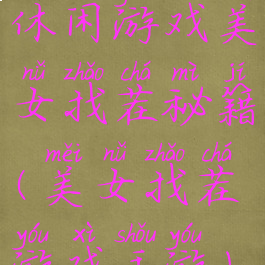 休闲游戏美
nǚ zhǎo chá mì jí
女找茬秘籍
měi nǚ zhǎo chá
(美女找茬
yóu xì shǒu yóu
游戏手游)